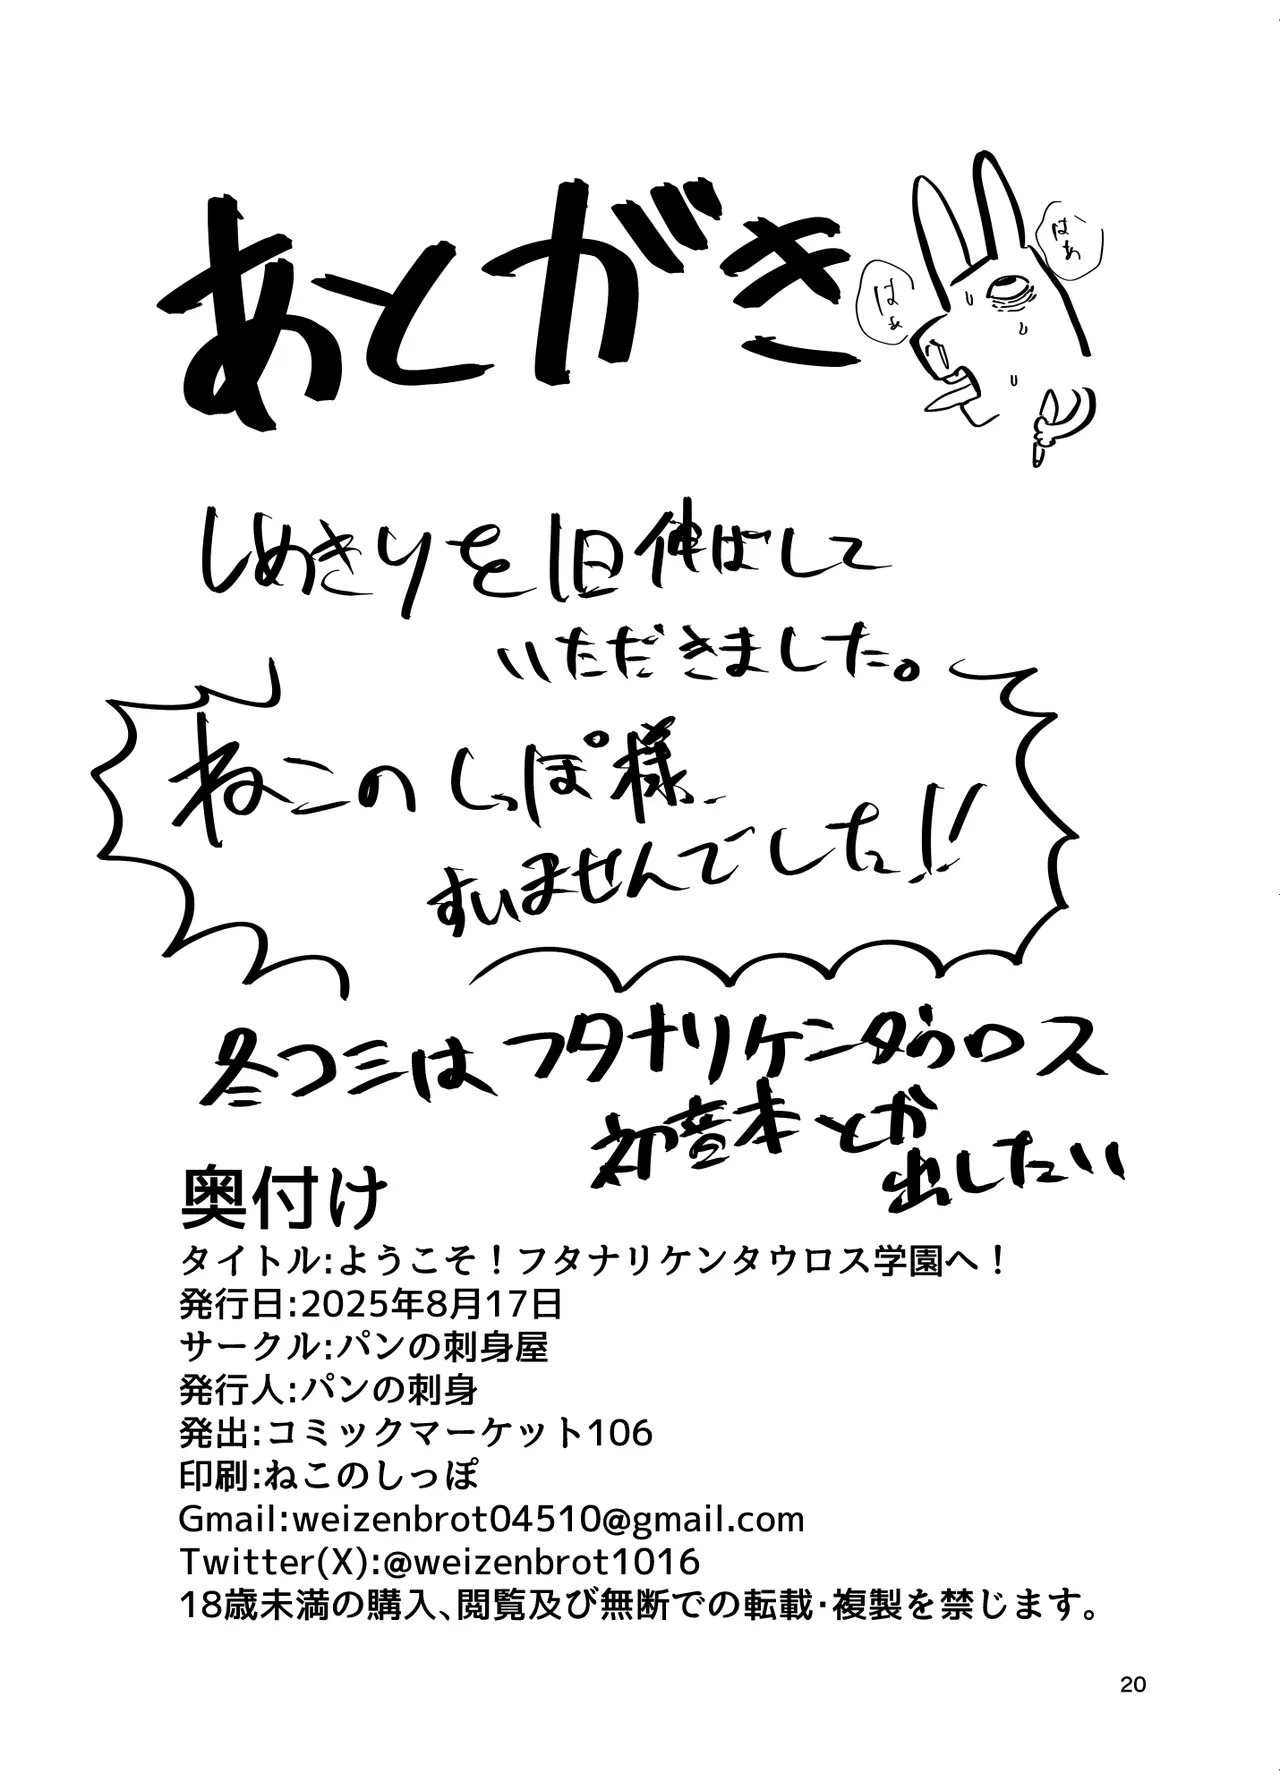 あとがき
はぁ
はぁ
しめきりを1日伸ばして
いただきました。
ねこのしっぽ様
すいませんでした!!
冬コミはフタナリケンタウロス
初音本とか
出したい
奥付け
タイトル:ようこそ!フタナリケンタウロス学園へ!
発行日:2025年8月17日
サークル:パンの刺身屋
発行人:パンの刺身
発出:コミックマーケット106
印刷:ねこのしっぽ
Gmail:weizenbrot04510@gmail.com
Twitter(X):@weizenbrot1016
18歳未満の購入、閲覧及び無断での転載・複製を禁じます。
20